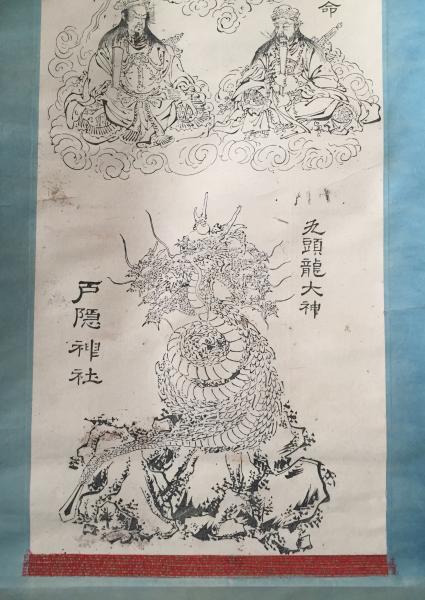 命
九頭龍大神
戸隠神社